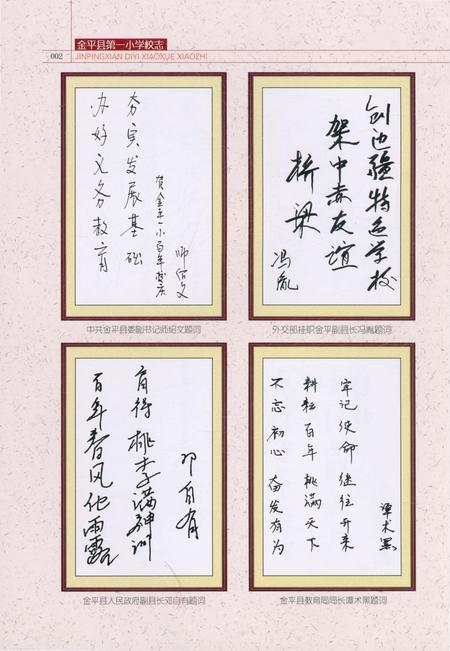 金平县第一小学校志
002
JINPINGXIAN DIYI XIAOXUE XIAOZHI
夯实发展基础
办好义务教育
贺金平一小百年校庆
师绍文
中共金平县委副书记师绍文题词
创边疆特色学校
架中赤友谊
桥梁
冯胤
外交部挂职金平副县长冯胤题词
百年春风化雨露
育得桃李满神洲
邓自有
金平县人民政府副县长邓自有题词
牢记使命 继往开来
耕耘百年 桃满天下
不忘初心 奋发有为
谭术黑
金平县教育局局长谭术黑题词